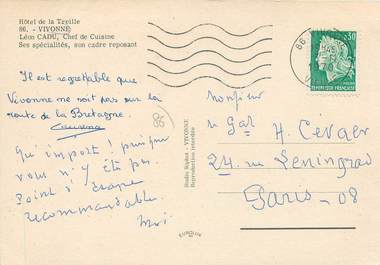 Hôtel de la Treille
86. - VIVONNE
Léon CADU, Chef de Cuisine
Ses spécialités, son cadre reposant
Il est regrettable que
Vivonne ne soit pas sur la
route de la Bretagne.
Qu'importe ! puisque
vous n'y été pas
point d'étape
recommandable.
Moi.
86
Studio Riplet - VIVONNE
Reproduction interdite
EUROLUX
86
0,30
REPUBLIQUE FRANÇAISE
Monsieur
H. Cevaer
24, rue Leningrad
Paris - 08